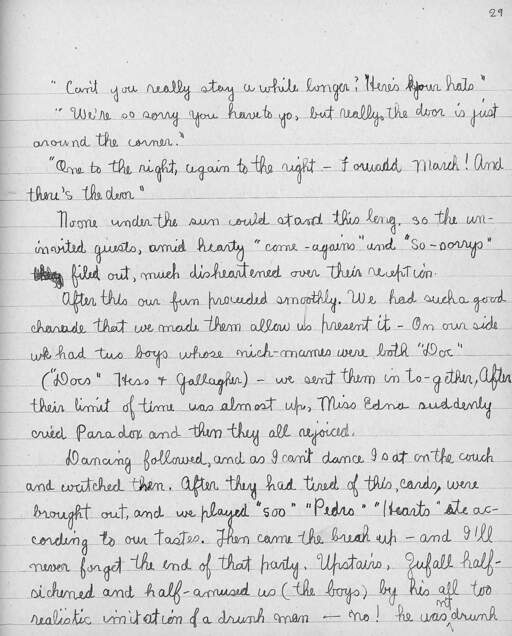 29
"Can't you really stay a while longer? "Here's your hats"
"We're so sorry you have to go, but really, the door is just
around the corner."
"One to the right, again to the right – Forwadd March! And
there's the door"
Noone under the sun could stand this long, so the un-
invited guests, amid hearty "come-agains" and "So-sorrys"
filed out, much disheartened over their reception.
After this our fun proceded smoothly. We had such a good
charade that we made them allow us present it – On our side
we had two boys whose nick-names were both "Doc"
("Docs" Hess & Gallagher) – we sent them in to-gether, After
their limit of time was almost up, Miss Edna suddenly
cried Paradox and then they all rejoiced.
Dancing followed, and as I can't dance I sat on the couch
and watched them. After they had tired of this, cards, were
brought out, and we played "500" "Pedro" "Hearts" etc ac-
cording to our tastes. Then came the break up – and I'll
never forget the end of that party. Upstairs, Zufall half-
sickened and half-amused us (the boys) by his all too
realistic imitation of a drunk man – no! he wasn't drunk